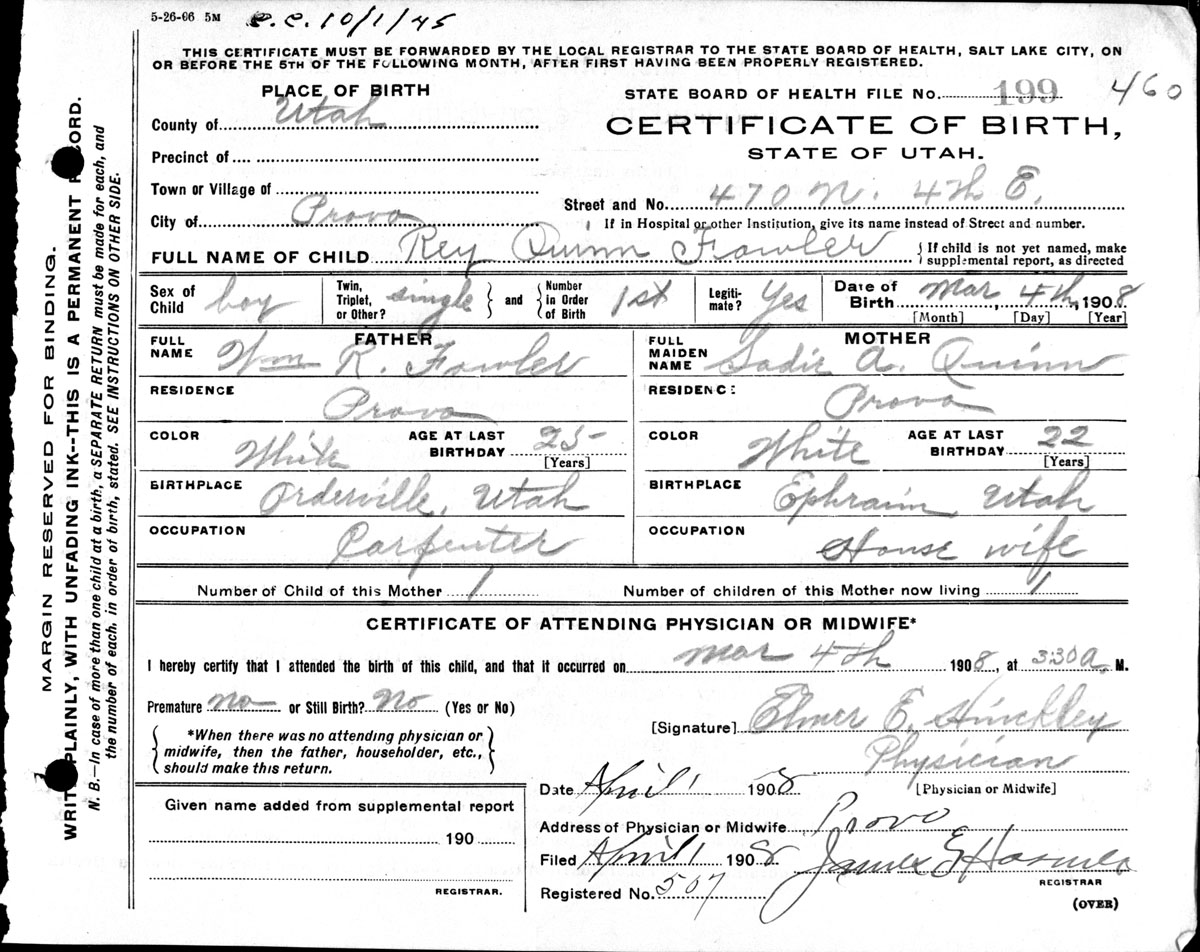 5-26-06 5M C.C. 10/1/45
THIS CERTIFICATE MUST BE FORWARDED BY THE LOCAL REGISTRAR TO THE STATE BOARD OF HEALTH, SALT LAKE CITY, ON
OR BEFORE THE 5TH OF THE FOLLOWING MONTH, AFTER FIRST HAVING BEEN PROPERLY REGISTERED.
PLACE OF BIRTH
STATE BOARD OF HEALTH FILE No. 199 460
County of Utah
CERTIFICATE OF BIRTH,
STATE OF UTAH.
Precinct of
Town or Village of
Street and No. 470 N. 4th E.
City of Provo
If in Hospital or other Institution, give its name instead of Street and number.
FULL NAME OF CHILD Rey Quinn Fowler {If child is not yet named, make
supplemental report, as directed
Sex of Child boy
Twin, Triplet, or Other? single } and { Number in Order of Birth 1st
Legiti-mate? Yes
Date of Birth Mar 4th, 1908
[Month] [Day] [Year]
FATHER
FULL NAME Wm R. Fowler
MOTHER
FULL MAIDEN NAME Sadie A. Quinn
RESIDENCE Provo
RESIDENCE Provo
COLOR White AGE AT LAST BIRTHDAY 25 [Years]
COLOR White AGE AT LAST BIRTHDAY 22 [Years]
BIRTHPLACE Orderville, Utah
BIRTHPLACE Ephraim Utah
OCCUPATION Carpenter
OCCUPATION House wife
Number of Child of this Mother 1 Number of children of this Mother now living 1
CERTIFICATE OF ATTENDING PHYSICIAN OR MIDWIFE*
I hereby certify that I attended the birth of this child, and that it occurred on Mar 4th 1908, at 3:30 a. M.
Premature no or Still Birth? No (Yes or No)
[Signature] Elmer E. Hinckley
Physician
[Physician or Midwife]
{ *When there was no attending physician or }
midwife, then the father, householder, etc.,
should make this return.
Date April 1 1908
Given name added from supplemental report
190
REGISTRAR.
Address of Physician or Midwife Provo
Filed April 1 1908 James E
REGISTRAR
Registered No. 507
(OVER)
MARGIN RESERVED FOR BINDING.
PLAINLY, WITH UNFADING INK--THIS IS A PERMANENT
N. B.—In case of more than one child at a birth, a SEPARATE RETURN must be made for each, and
the number of each, in order of birth, stated. SEE INSTRUCTIONS ON OTHER SIDE.